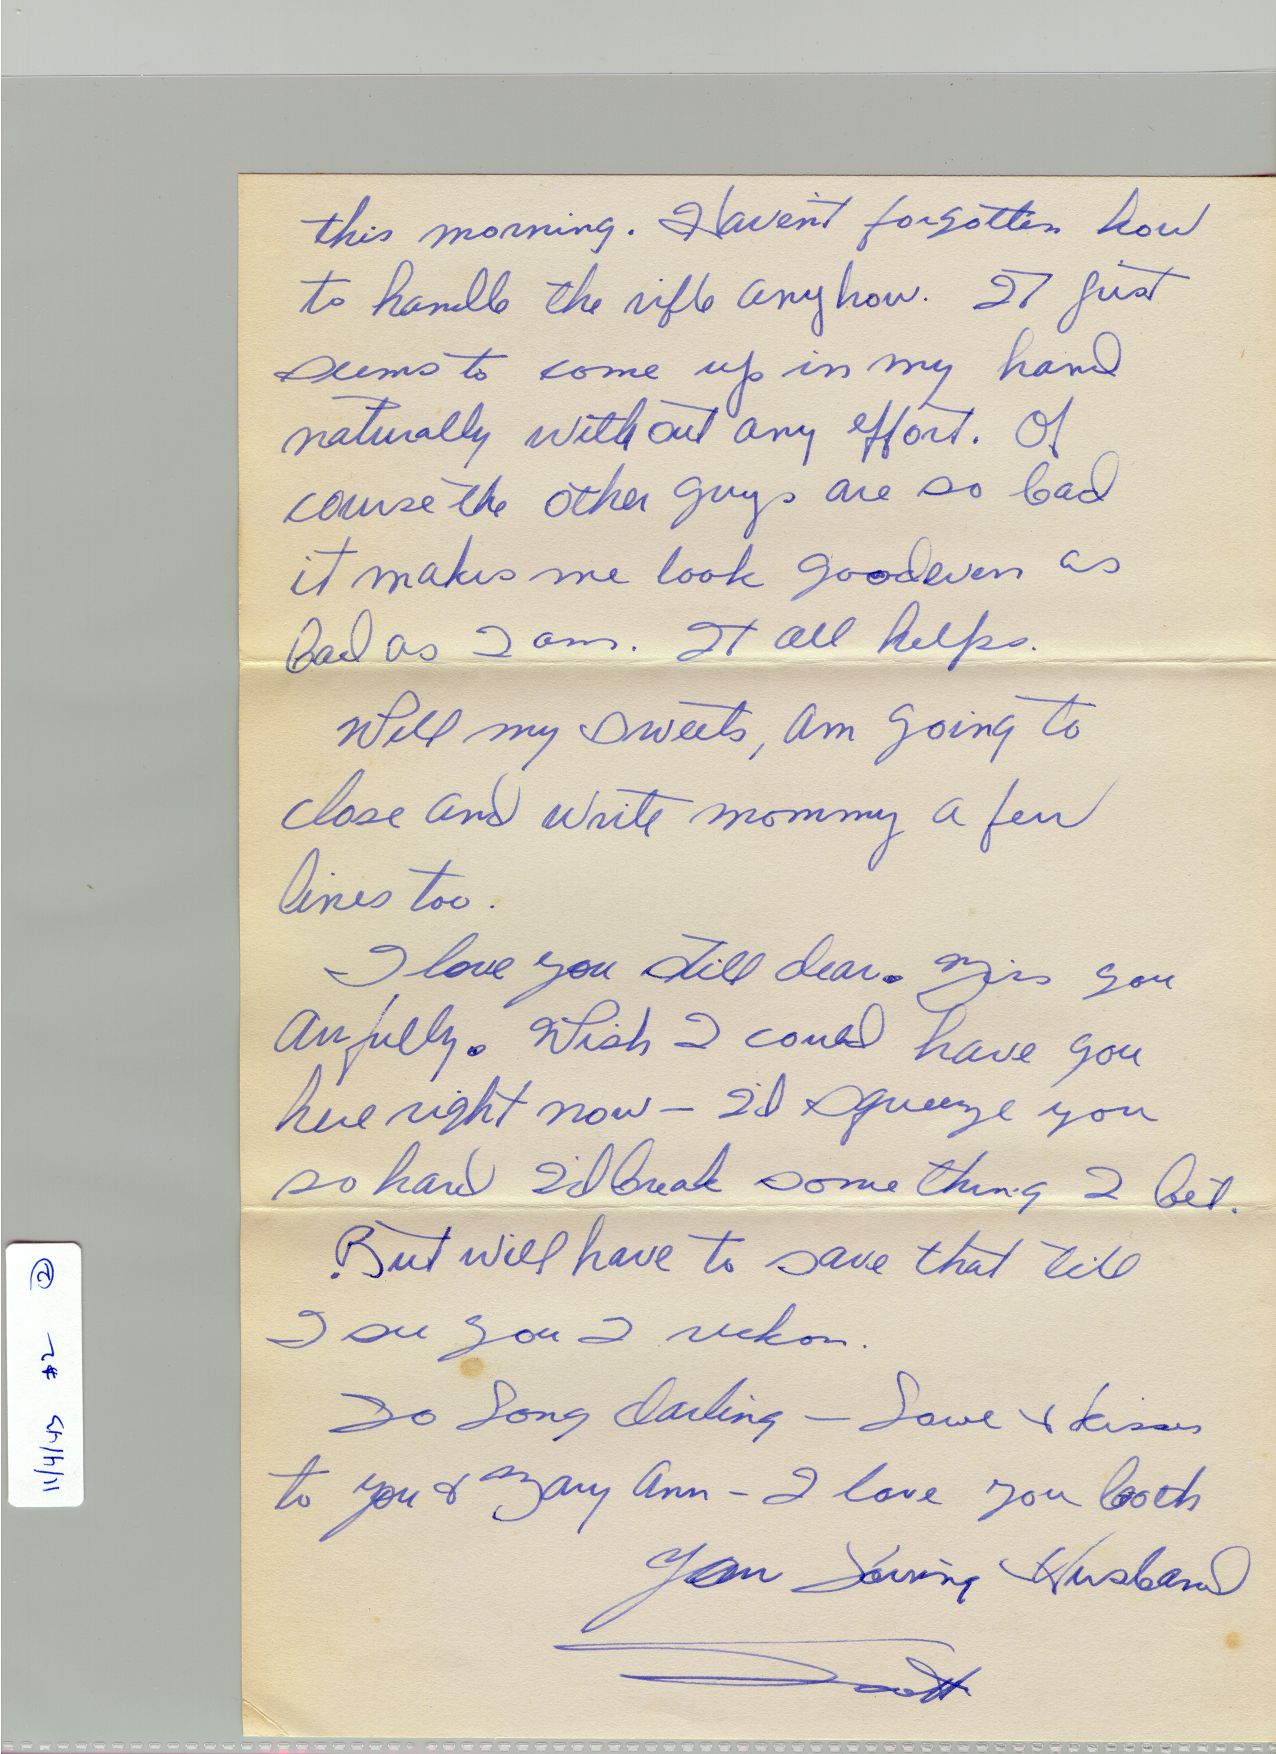 this morning. Haven't forgotten how
to handle the rifle anyhow. It just
seems to come up in my hand
naturally without any effort. Of
course the other guys are so bad
it makes me look good even as
bad as I am. It all helps.
Well my sweets, am going to
close and write mommy a few
lines too.
I love you still dear. Miss you
awfully. Wish I could have you
here right now – I'd squeeze you
so hard I'd break something I bet.
But will have to save that till
I see you I reckon.
So long darling – Love & kisses
to you & Mary Ann – I love you both
Your Loving Husband
Scott
11/4/43 #2 ②